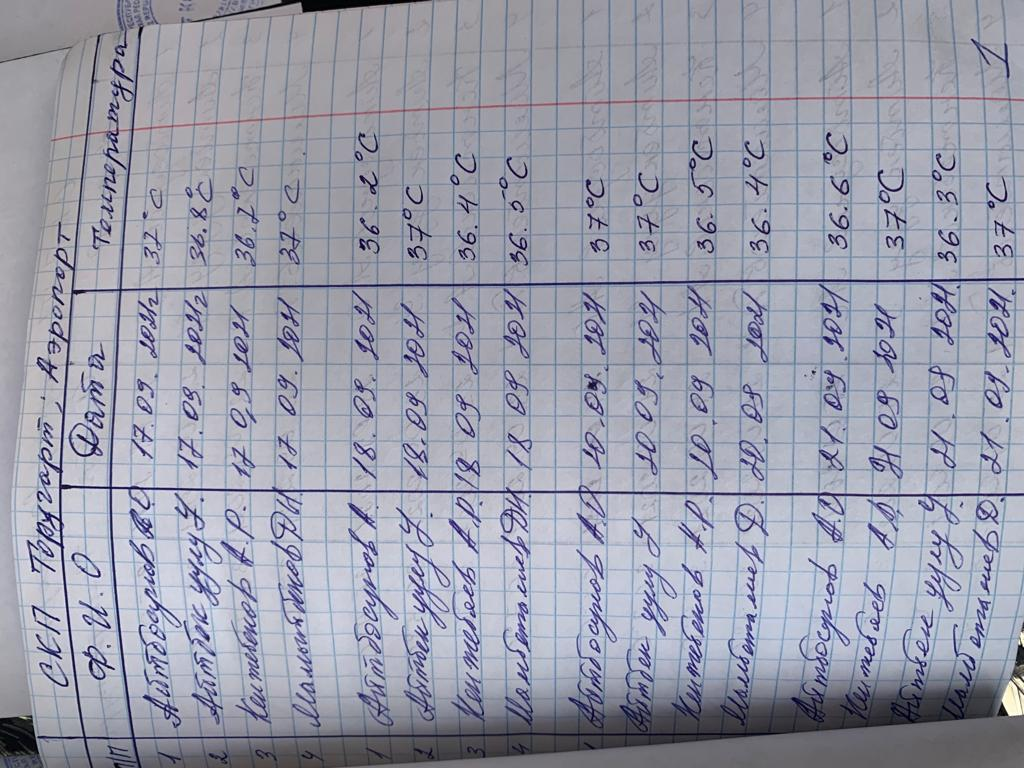 СКП Торугарт, Аэропорт
П/П Ф. И. О Дата Температура
1 Айтбосунов А.О 17.09.2021г 37°С
2 Айтбек уулу У. 17.09.2021г 36.8°С
3 Кентебеков А.Р. 17 09.2021 36.2°С
4 Д Н 17 09.2021 37°С
1 Айтбосунов А. 18.09.2021 36.2°С
2 Айтбек уулу У. 18.09 2021 37°С
3 Кентебаев А.Р. 18 09 2021 36.4°С
4 Мамбеталиев ДН 18 09 2021 36.5°С
1 Айтбосунов А.О 20.09.2021 37°С
Айтбек уулу У 20 09.2021 37°С
Кентебеков А.Р. 20.09 2021 36.5°С
Мамбеталиев Д. 20.09 2021 36.4°С
Айтбосунов А.О 21.09.2021 36.6°С
Кентебаев А.Р. 21 09 2021 37°С
Айтбек уулу У. 21.09 2021. 36.3°С
Мамбеталиев Д. 21.09.2021. 37°С
1